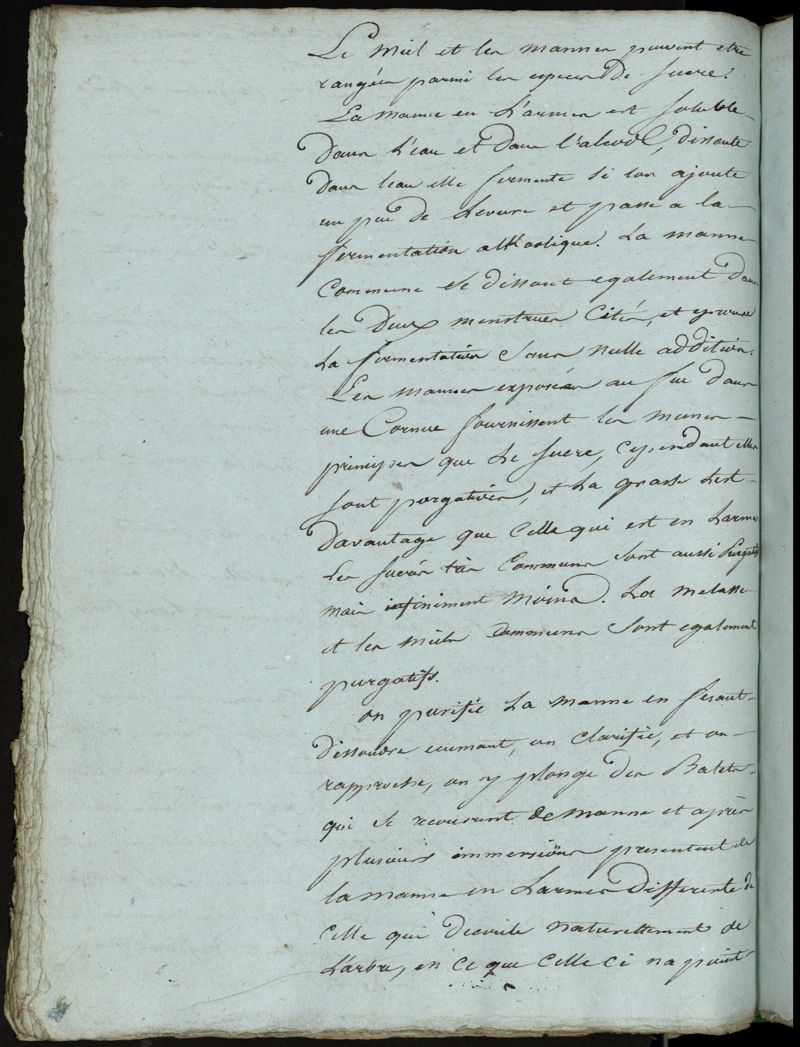 Le miel et les mannes peuvent etre
rangées parmi les especes de sucre.
La manne en Larmes est soluble
Dans L'eau et Dans l'alcool, dissoute
Dans leau elle fermente si lon ajoute
un peu de Levure et passe a la
fermentation alkoolique. La manne
Commune se dissout egalement Dans
les Deux menstrues Cités, et eprouve
La fermentation Sans nulle addition.
Les mannes exposées au feu dans
une Cornue fournissent les memes
principes que Le Sucre, Cependant elles
sont purgatives, et La grasse L'est
Davantage que Celle qui est en Larmes
Les Sucres très Communs Sont aussi Purgatifs
mais infiniment moins. La melasse
et les miels Communs Sont egalement
purgatifs.
on purifie La manne en fesant
dissoudre ecumant, on clarifie, et on
rapproche, on y plonge des Batets
qui se recouvrent de manne et après
plusieurs immersions presentent de
la manne en Larmes Differente de
Celle qui Decoule naturellement de
L'arbre, en ce que Celle Ci na point